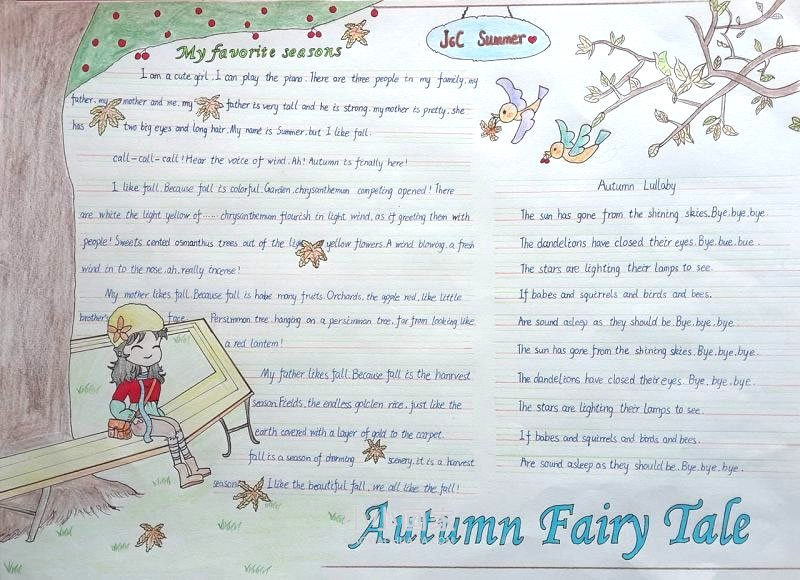 My favorite seasons
I am a cute girl. I can play the piano. There are three people in my family. my
father. my mother and me. my father is very tall and he is strong. my mother is pretty. she
has two big eyes and long hair. My name is Summer. but I like fall.
call-call-call! Hear the voice of wind. Ah! Autumn is finally here!
I like fall. Because fall is colorful. Garden. chrysanthemun competing opened! There
are white the light yellow of ...... chrysanthemum flourish in light wind, as if greeting them with
people! Sweets cented osmanthus trees out of the light yellow flowers. A wind blowing, a fresh
wind in to the nose. ah. really incense!
My mother likes fall. Because fall is have many fruits. Orchards, the apple red, like little
brother's face. Persimmon tree, hanging on a persimmon tree, far from looking like
a red lantern!
My father likes fall. Because fall is the hanrvest
season. Fields, the endless golclen rice, just like the
earth covered with a layer of gold to the carpet.
fall is a season of charming scenery. it is a harvest
season. I like the beautiful fall, we all like the fall!
J&C Summer
Autumn Lullaby
The sun has gone from the shining skies. Bye, bye, bye.
The dandelions have closed their eyes. Bye, bue, bue.
The stars are lighting their lamps to see.
If babes and squirrels and birds and bees.
Are sound asleep as they should be. Bye, bye, bye.
The sun has gone from the shining skies. Bye, bye, bye.
The dandelions have closed their eyes. Bye, bye, bye.
The stars are lighting their lamps to see.
If babes and squirrels and birds and bees.
Are sound asleep as they should be. Bye, bye, bye.
Autumn Fairy Tale